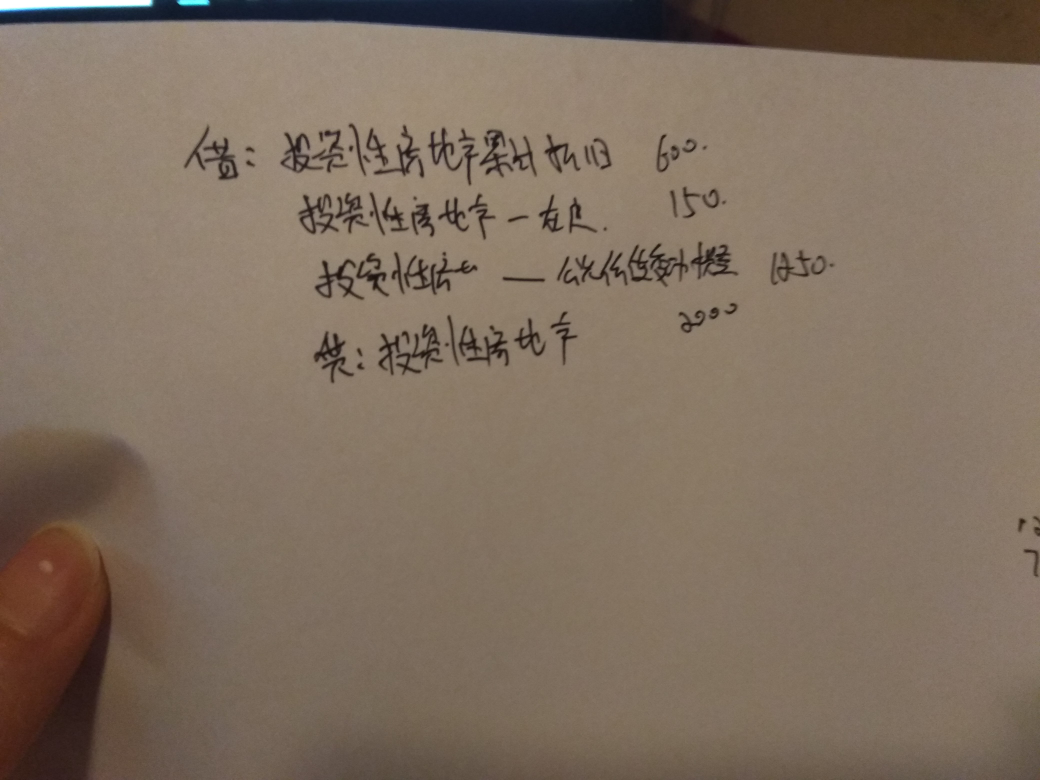 借：投资性房地产累计折旧 600.
投资性房地产一在建. 150.
投资性房地 — 公允价值变动损益 1250.
贷：投资性房地产 2000
7